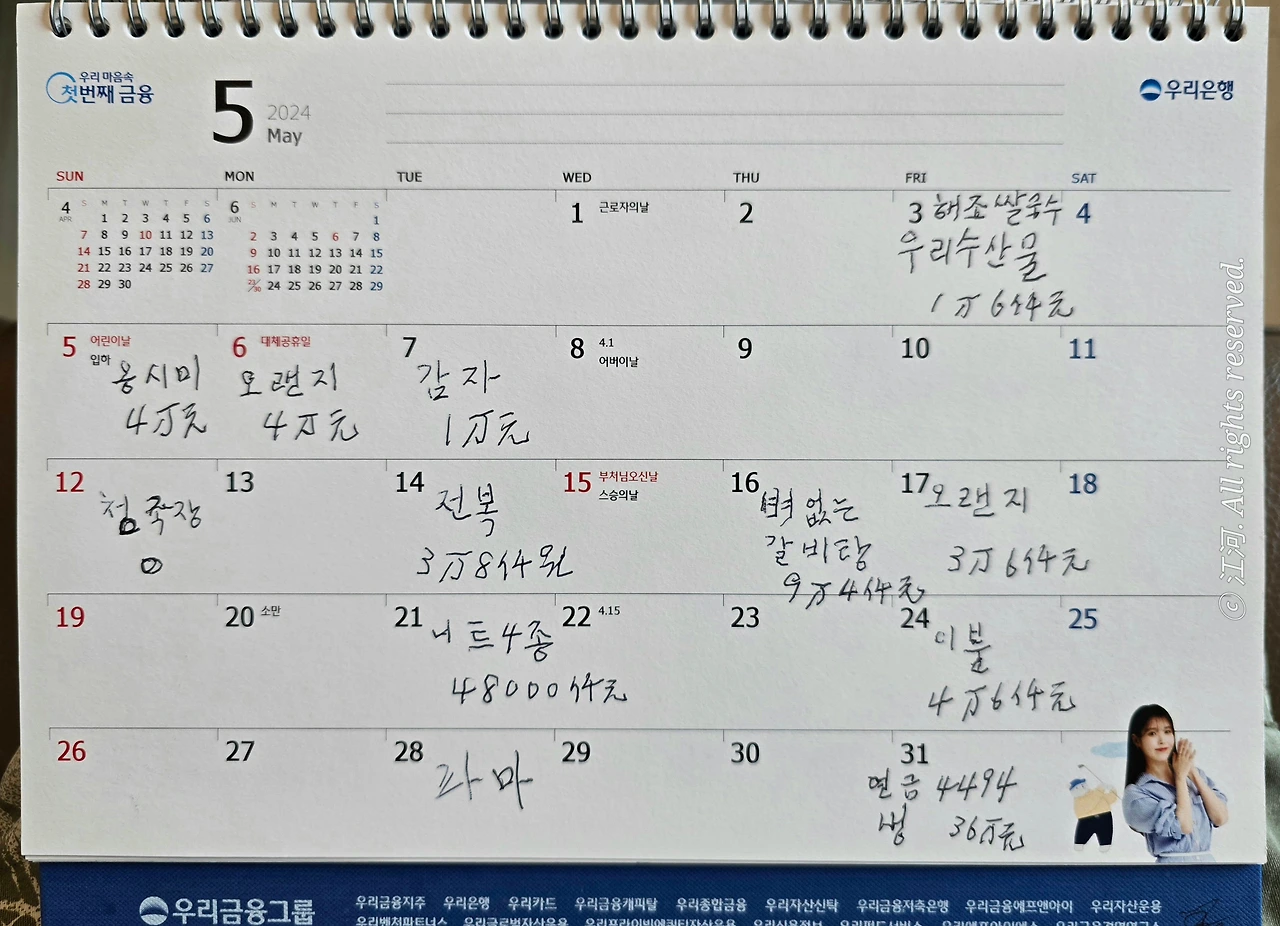 우리 마음속
첫번째 금융
5
2024
May
우리은행
SUN MON TUE WED THU FRI SAT
4
APR
S M T W T F S
1 2 3 4 5 6
7 8 9 10 11 12 13
14 15 16 17 18 19 20
21 22 23 24 25 26 27
28 29 30
6
JUN
S M T W T F S
1
2 3 4 5 6 7 8
9 10 11 12 13 14 15
16 17 18 19 20 21 22
23/30 24 25 26 27 28 29
1 근로자의날
2
3 해조쌀국수
우리수산물
1万6仟元
4
5 어린이날
입하
용시미
4万元
6 대체공휴일
오랜지
4万元
7
감자
1万元
8 4.1
어버이날
9
10
11
12
청국장
0
13
14
전복
3万8仟원
15 부처님오신날
스승의날
16
뼈없는
갈비탕
9万4仟元
17 오랜지
3万6仟元
18
19
20 소만
21 니트4종
48000仟元
22 4.15
23
24
이불
4万6仟元
25
26
27
28
파마
29
30
31
연금 4494
생 36万元
© 江河. All rights reserved.
우리금융그룹
우리금융지주 우리은행 우리카드 우리금융캐피탈 우리종합금융 우리자산신탁 우리금융저축은행 우리금융에프앤아이 우리자산운용
우리벤처파트너스 우리글로벌자산운용 우리프라이빗에퀴티자산운용 우리신용정보 우리펀드서비스 우리에프아이에스 우리금융경영연구소